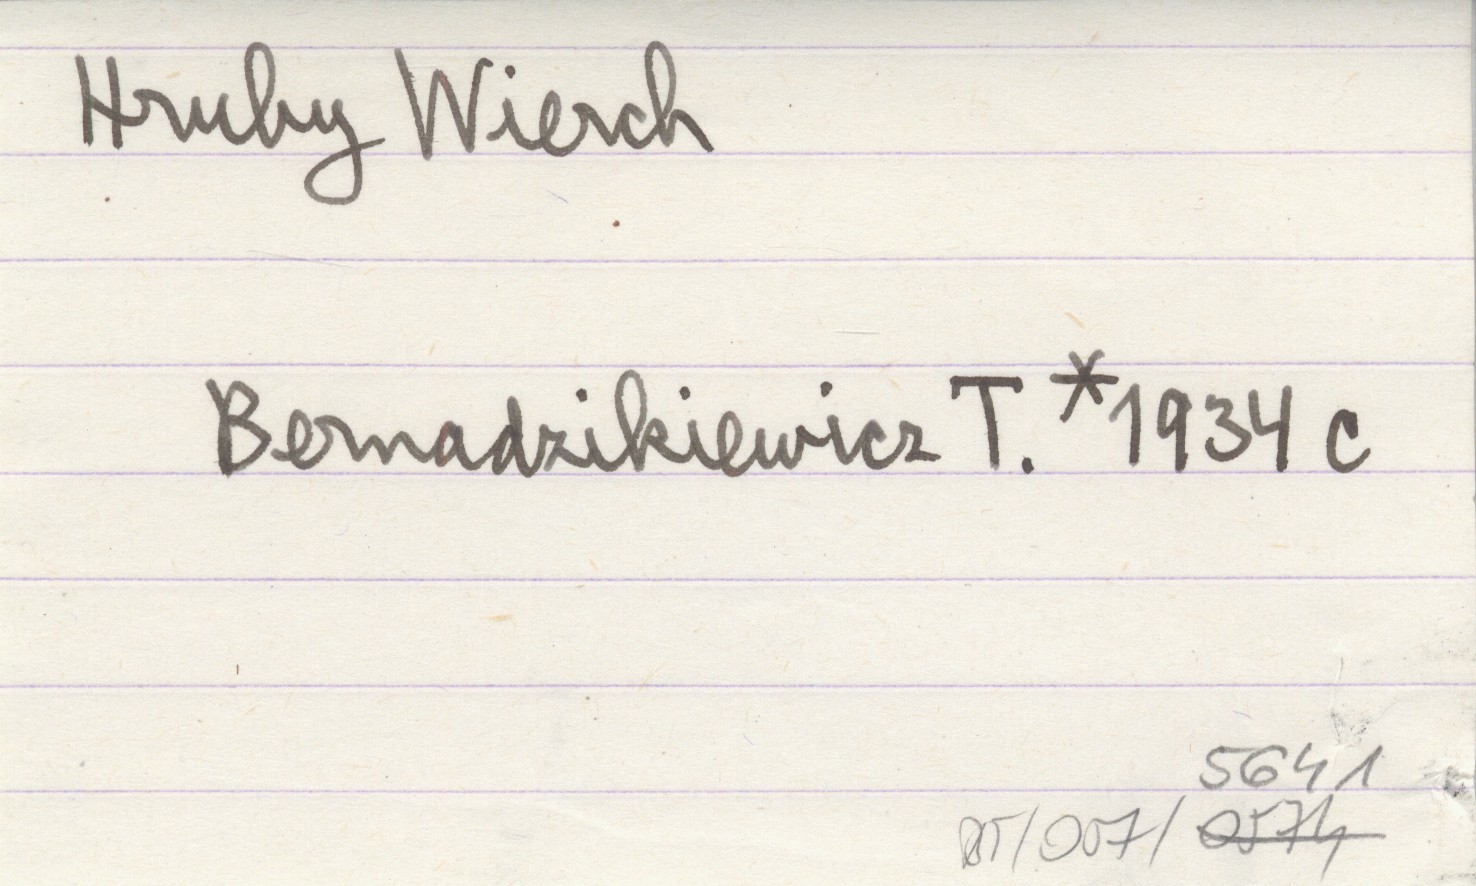 Hruby Wierch
Bernadzikiewicz T.*1934 c
5641
/007/ 0574